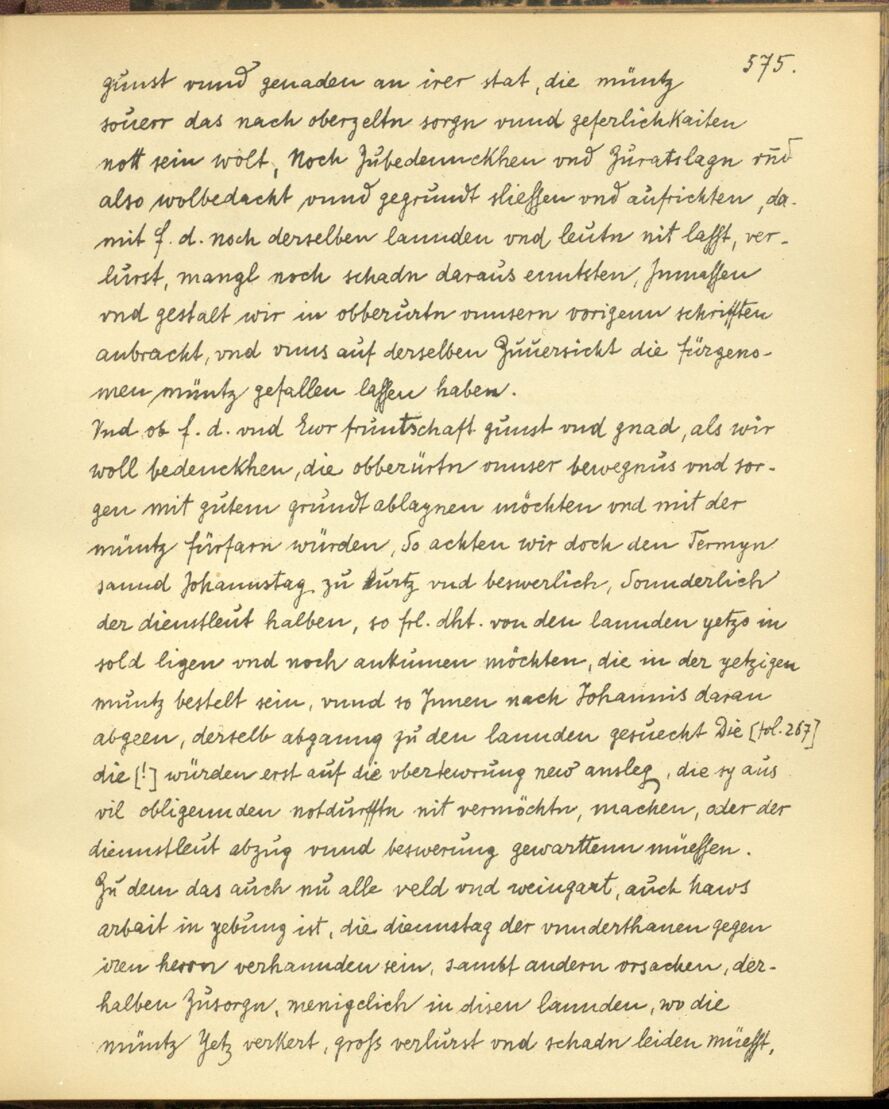 575.
gunst vnnd genaden an irer stat, die müntz
souerr das nach oberzeltn sorgn vnnd geferlichkaiten
nott sein wolt, Noch Zubedennckhen vnd Zuratslagn vnd
also wolbedacht vnnd gegrundt sliessen vnd aufrichten, da-
mit f. d. noch derselben lannden vnd leutn nit lasst, ver-
lurst, mangl noch schadn daraus enntsten, Jnmassen
vnd gestalt wir in obberurtn vnnsern vorigenn schrifften
anbracht, vnd vnns auf derselben Zuuersicht die fürgeno-
men müntz gefallen lassen haben.
Vnd ob f. d. vnd Ewr fruntschaft gunst vnd gnad, als wir
woll bedenckhen, die obberürtn vnnser bewegnus vnd sor-
gen mit gutem grundt ablaynen möchten vnd mit der
müntz fürfarn würden, So achten wir doch den Termyn
sannd Johannstag zu kurtz vnd beswerlich, Sonnderlich
der dienstleut halben, so frl. dht. von den lannden yetzo in
sold ligen vnd noch ankumen möchten, die in der yetzigen
muntz bestelt sein, vnnd so Jnnen nach Johannis daran
abgeen, derselb abganng zu den lannden gesuecht Die [fol. 267]
die [!] würden erst auf die vbertewrung new ansleg, die sy aus
vil obligennden notdurfftn nit vermöchtn, machen, oder der
diennstleut abzug vnnd beswerung gewarttenn müessen.
Zu dem das auch nu alle veld vnd weingart, auch haws
arbait in yebung ist, die diennstag der vnnderthanen gegen
iren herrn verhannden sein, sambt andern vrsachen, der-
halben Zusorgn, menigclich in disen lannden, wo die
müntz Yetz verkert, gross verlurst vnd schadn leiden müesst,